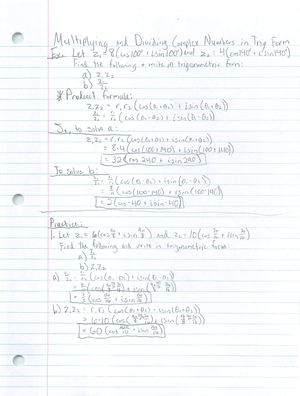 Multiplying and Dividing Complex Numbers in Trig Form
Ex: Let z₁ = 8(cos100° + isin100°) and z₂ = 4(cos140° + isin140°)
Find the following + write in trigonometric form:
a) z₁z₂
b) z₁/z₂
* Product formula:
z₁z₂ = r₁r₂ (cos(θ₁+θ₂) + isin(θ₁+θ₂))
z₁/z₂ = r₁/r₂ (cos(θ₁-θ₂) + isin(θ₁-θ₂))
To solve a:
z₁z₂ = r₁r₂ (cos(θ₁+θ₂) + isin(θ₁+θ₂))
= 8·4 (cos(100+140) + isin(100+140))
= 32(cos 240 + isin 240)
To solve b:
z₁/z₂ = r₁/r₂ (cos(θ₁-θ₂) + isin(θ₁-θ₂))
(cos(100-140) + isin(100-140))
= 2(cos-40 + isin-40)
Practice:
1. Let z₁ = 6(cos + isin) and z₂ = 10(cos + isin)
Find the following and write in trigonometric form:
a) z₁/z₂
b) z₁z₂
a) z₁/z₂ = r₁/r₂ (cos(θ₁-θ₂) + isin(θ₁-θ₂))
b) z₁z₂ = r₁r₂ (cos(θ₁+θ₂) + isin(θ₁+θ₂))
= 6·10 (cos + isin)
= 60 (cos + isin)